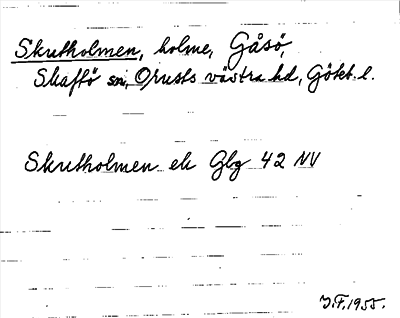 Skutholmen, holme, Gåsö,
Skaftö sn, Orusts västra hd, Göteb. l.
Skutholmen ek Glg 42 NV
J.F. 1955.